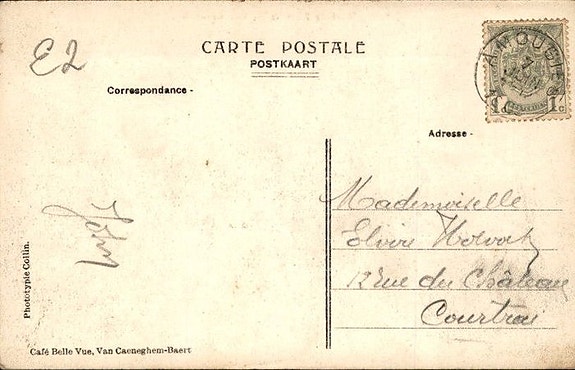 E2
CARTE POSTALE
POSTKAART
Correspondance -
Adresse -
1 c. 1 c.
Mademoiselle
Elvire
12 rue du Château
Courtrai
Phototypie Collin.
Café Belle Vue, Van Caeneghem-Baert